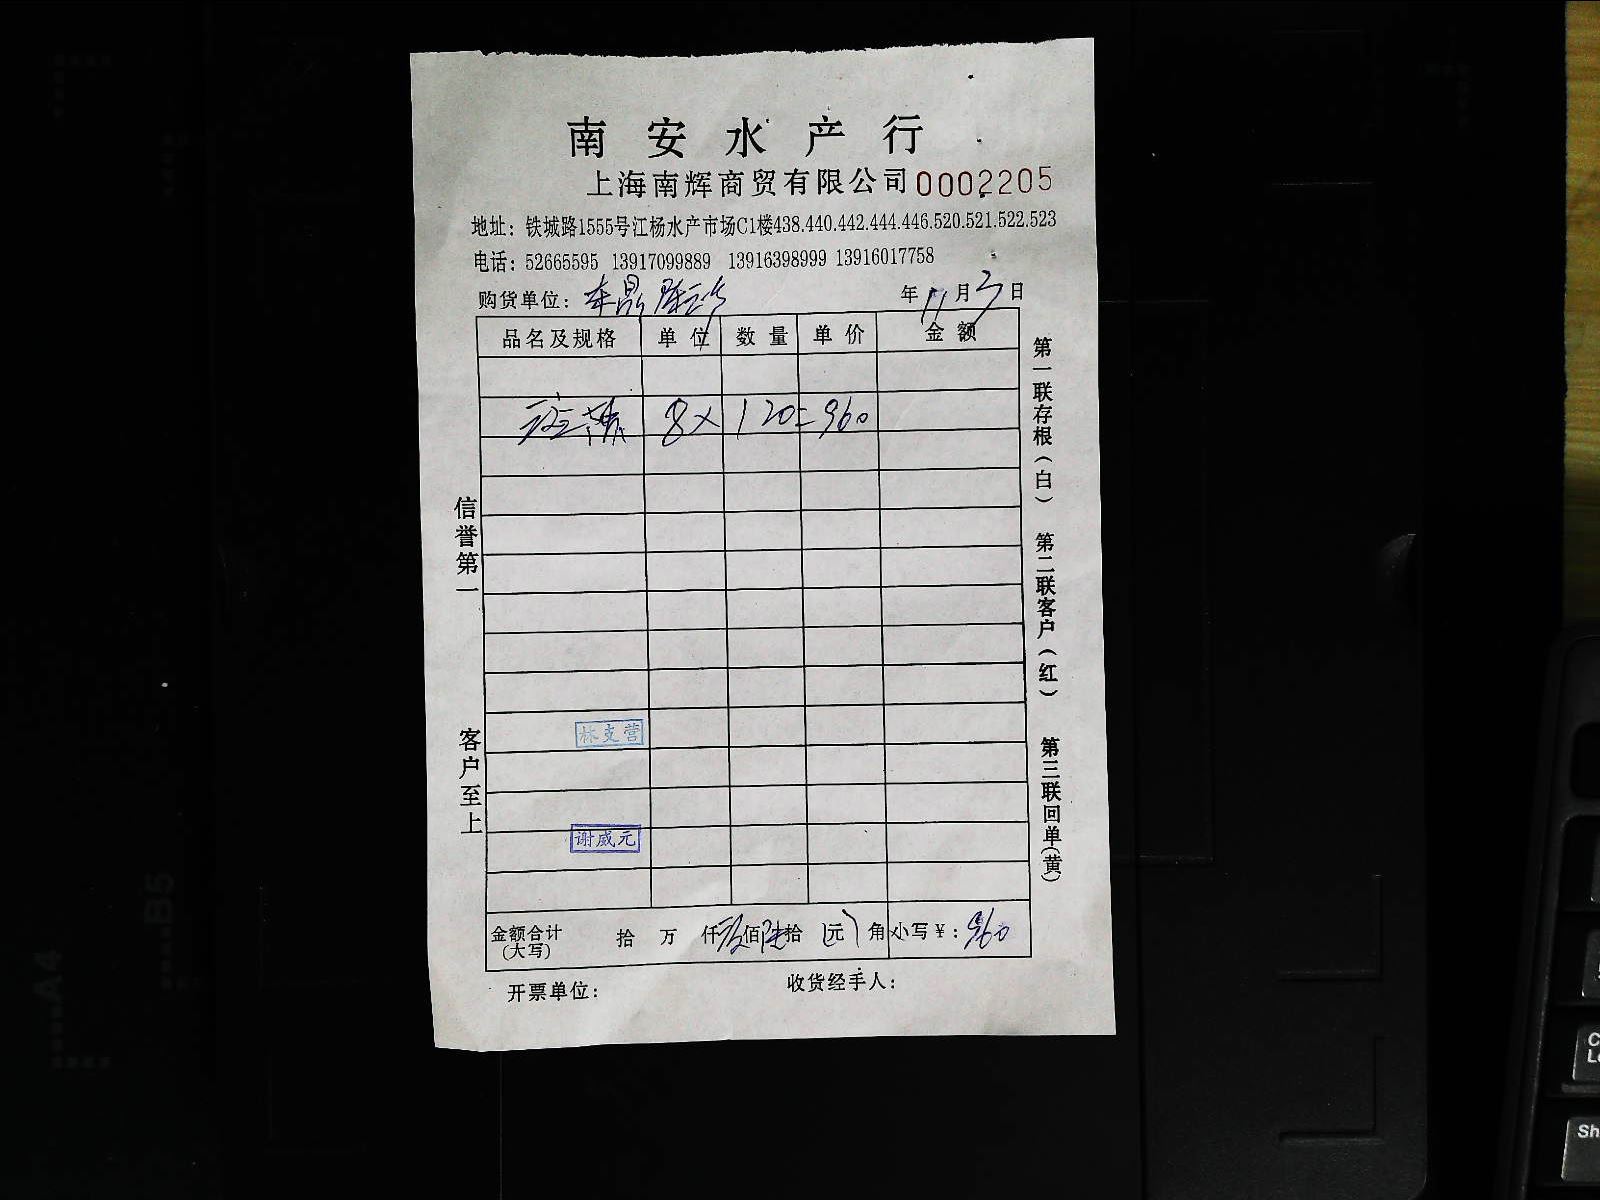 南安水产行
上海南辉商贸有限公司 0002205
地址：铁城路1555号江杨水产市场C1楼438.440.442.444.446.520.521.522.523
电话：52665595 13917099889 13916398999 13916017758
购货单位： 年 11 月 3 日
品名及规格 单位 数量 单价 金额
8 × 120 = 960
林支营
谢威元
金额合计（大写） 拾 万 仟 玖 佰 陆 拾 元 角 小写￥：960
开票单位： 收货经手人：
信誉第一
客户至上
第一联存根（白）
第二联客户（红）
第三联回单（黄）
A4
B5